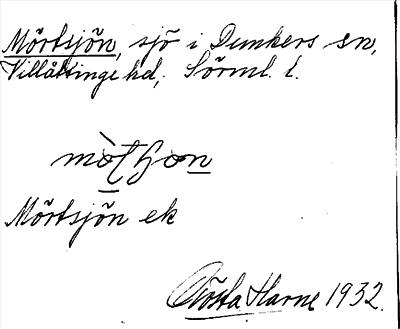 Mörtsjön, sjö i Dunkers sn,
Villåttinge hd, Sörml. l.
Mörtsjön ek
Gösta Harne 1932.